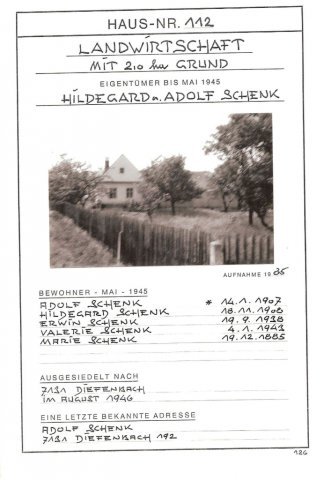 HAUS-NR. 112
LANDWIRTSCHAFT
MIT 2,0 ha GRUND
EIGENTÜMER BIS MAI 1945
HILDEGARD u. ADOLF SCHENK
AUFNAHME 1935
BEWOHNER - MAI - 1945
ADOLF SCHENK * 14.1.1907
HILDEGARD SCHENK 18.11.1908
ERWIN SCHENK 19.9.1938
VALERIE SCHENK 4.1.1941
MARIE SCHENK 19.12.1885
AUSGESIEDELT NACH
7131 DIEFENBACH
IM AUGUST 1946
EINE LETZTE BEKANNTE ADRESSE
ADOLF SCHENK
7131 DIEFENBACH 192
126